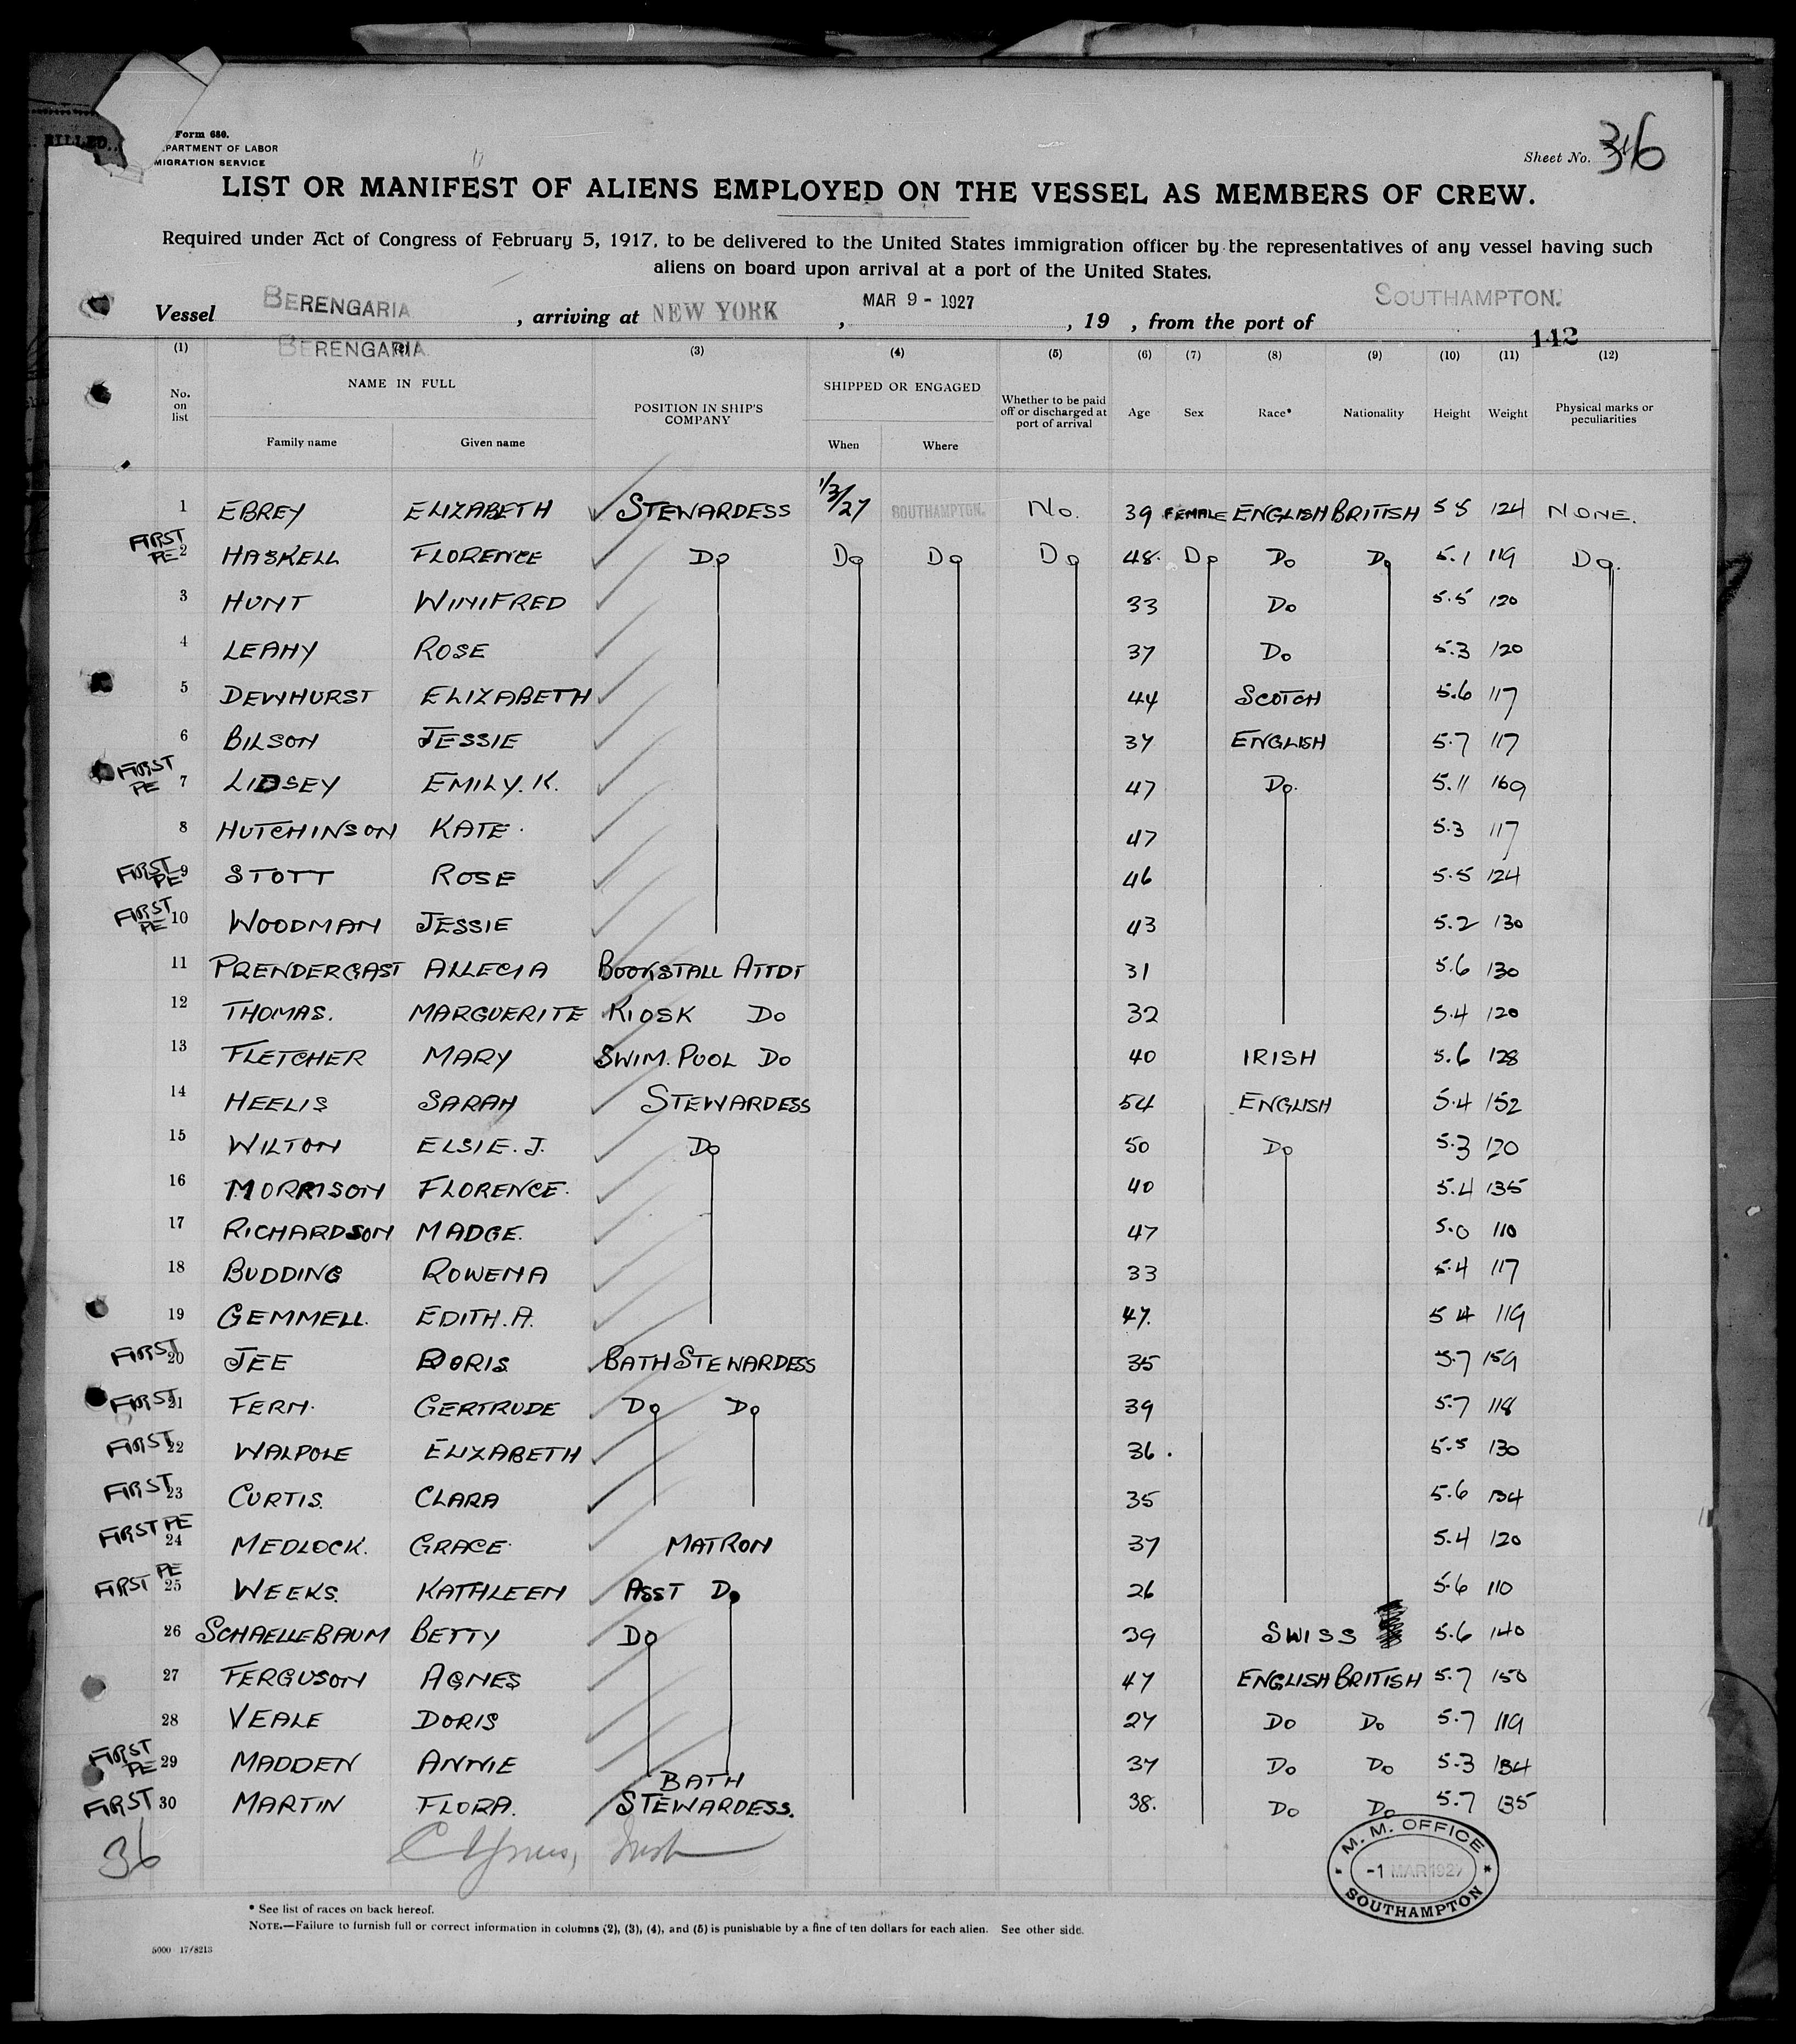 FILLED..
Form 680.
PARTMENT OF LABOR
MIGRATION SERVICE
Sheet No. 36
LIST OR MANIFEST OF ALIENS EMPLOYED ON THE VESSEL AS MEMBERS OF CREW.
Required under Act of Congress of February 5, 1917, to be delivered to the United States immigration officer by the representatives of any vessel having such
aliens on board upon arrival at a port of the United States.
Vessel BERENGARIA, arriving at NEW YORK, MAR 9 - 1927, 19 , from the port of SOUTHAMPTON.
BERENGARIA
142
(1) (3) (4) (5) (6) (7) (8) (9) (10) (11) (12)
No. on list NAME IN FULL POSITION IN SHIP'S COMPANY SHIPPED OR ENGAGED Whether to be paid off or discharged at port of arrival Age Sex Race* Nationality Height Weight Physical marks or peculiarities
Family name Given name When Where
1 EBREY ELIZABETH STEWARDESS 1/3/27 SOUTHAMPTON. No. 39 FEMALE ENGLISH BRITISH 5 5 124 NONE.
FIRST PE 2 HASKELL FLORENCE Do Do Do Do 48. Do Do Do 5.1 119 Do.
3 HUNT WINIFRED 33 Do 5.5 120
4 LEAHY ROSE 37 Do 5.3 120
5 DEWHURST ELIZABETH 44 SCOTCH 5.6 117
6 BILSON JESSIE 37 ENGLISH 5.7 117
FIRST PE 7 LIDSEY EMILY. K. 47 Do. 5.11 169
8 HUTCHINSON KATE. 47 5.3 117
FIRST PE 9 STOTT ROSE 46 5.5 124
FIRST PE 10 WOODMAN JESSIE 43 5.2 130
11 PRENDERGAST ALLECIA BOOKSTALL ATTDT 31 5.6 130
12 THOMAS. MARGUERITE KIOSK Do 32 5.4 120
13 FLETCHER MARY SWIM. POOL Do 40 IRISH 5.6 128
14 HEELIS SARAH STEWARDESS 54 ENGLISH 5.4 152
15 WILTON ELSIE. J. Do 50 Do 5.3 120
16 MORRISON FLORENCE. 40 5.4 135
17 RICHARDSON MADGE. 47 5.0 110
18 BUDDING ROWENA 33 5.4 117
19 GEMMELL. EDITH. A. 47. 5 4 119
FIRST 20 JEE DORIS. BATH STEWARDESS 35 5.7 159
FIRST 21 FERN. GERTRUDE Do Do 39 5.7 118
FIRST 22 WALPOLE ELIZABETH 36. 5.5 130
FIRST 23 CURTIS. CLARA 35 5.6 134
FIRST PE 24 MEDLOCK. GRACE MATRON 37 5.4 120
FIRST PE 25 WEEKS. KATHLEEN ASST Do 26 5.6 110
26 SCHAELLEBAUM BETTY Do 39 SWISS 5.6 140
27 FERGUSON AGNES 47 ENGLISH BRITISH 5.7 150
28 VEALE DORIS 27 Do Do 5.7 119
FIRST PE 29 MADDEN ANNIE 37 Do Do 5.3 134
FIRST 30 MARTIN FLORA. BATH STEWARDESS. 38. Do Do 5.7 135
36
M. M. OFFICE
-1 MAR 1927
SOUTHAMPTON
* See list of races on back hereof.
NOTE.—Failure to furnish full or correct information in columns (2), (3), (4), and (5) is punishable by a fine of ten dollars for each alien. See other side.
5000 17/8213